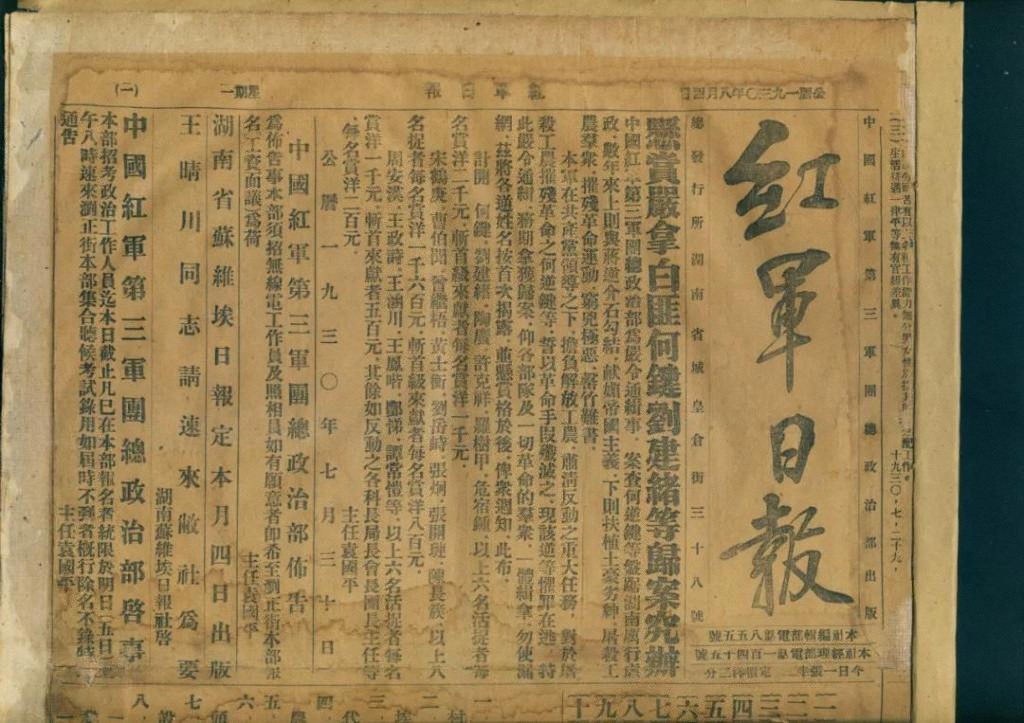 公曆一九三〇年八月四日
紅軍日報
星期一
(一)
紅軍日報
中國紅軍第三軍團總政治部出版
總發行所湖南省城皇倉街三十八號
本社編輯部電話八五五號
本社經理部電話一百四十五號
今日一張半
懸賞嚴拿白匪何鍵劉建緒等歸案究辦
中國紅軍第三軍團總政治部為嚴令通緝事、案查何逆鍵等盤踞湖南厲行虐
政、數年來上則與蔣逆介石勾結、獻媚帝國主義、下則扶植土豪劣紳、屠殺工
農羣衆、摧殘革命運動、窮兇極惡、罄竹難書、
本軍在共產黨領導之下、擔負解放工農、肅清反動之重大任務、對於屠
殺工農摧殘革命之何逆鍵等、誓以革命手段殲滅之、現該逆等懼罪在逃、特
此嚴令通緝、務期拿獲歸案、仰各部隊及一切革命的羣衆、一體緝拿、勿使漏
網、茲將各逆姓名按首次揭露、並懸賞格於後、俾衆週知、此布、
計開 何鍵、劉建緒、陶廣、許克祥、羅樹甲、危宿鍾、以上六名活捉者每
名賞洋二千元、斬首級來獻者每名賞洋一千元、
宋鶴庚、曹伯聞、曾繼梧、黃士衡、劉岳峙、張炯、張開璉、陳長簇、以上八
名活捉者每名賞洋一千六百元、斬首級來獻者每名賞洋八百元、
周安漢、王政詩、王涵川、王鳳喈、鄷悌、譚常愷等、以上六名活捉者每名
賞洋一千元、斬首來獻者五百元、其餘如反動之各科長局長會長團長主任等
、每名賞洋二百元、
主任袁國平
公曆一九三〇年七月三十日
中國紅軍第三軍團總政治部佈告
為佈告事本部須招無線電工作員及照相員如有願意者卽希至瀏正街本部報
名工資面議為荷
主任袁國平
湖南省蘇維埃日報定本月四日出版
王晴川同志請速來敝社為要
湖南蘇維埃日報社啓
中國紅軍第三軍團總政治部啓事
本部招考政治工作人員迄本日截止凡已在本部報名者統限於明日(五日)上
午八時速來瀏正街本部集合聽候考試錄用如屆時不到者概行除名不錄特
通告
主任袁國平